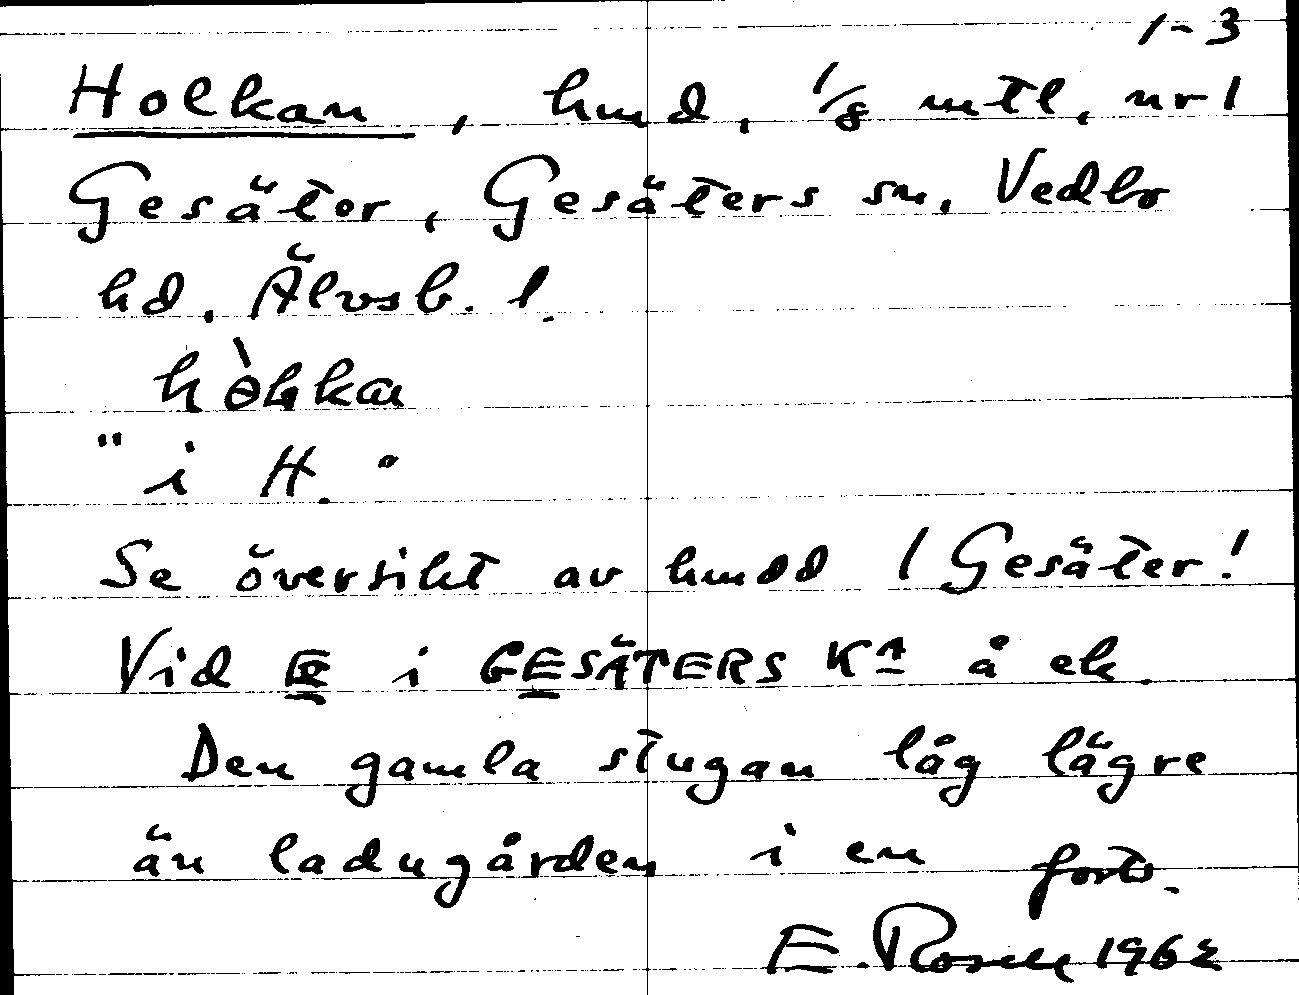 1-3
Holkan, hmd, 1/8 mtl, nr 1
Gesäter, Gesäters sn, Vedbo
hd, Älvsb. l.
"i H."
Se översikt av hmdd 1 Gesäter!
Vid E i GESÄTERS KA å ek.
Den gamla stugan låg lägre
än ladugården i en
E. Rosell 1962